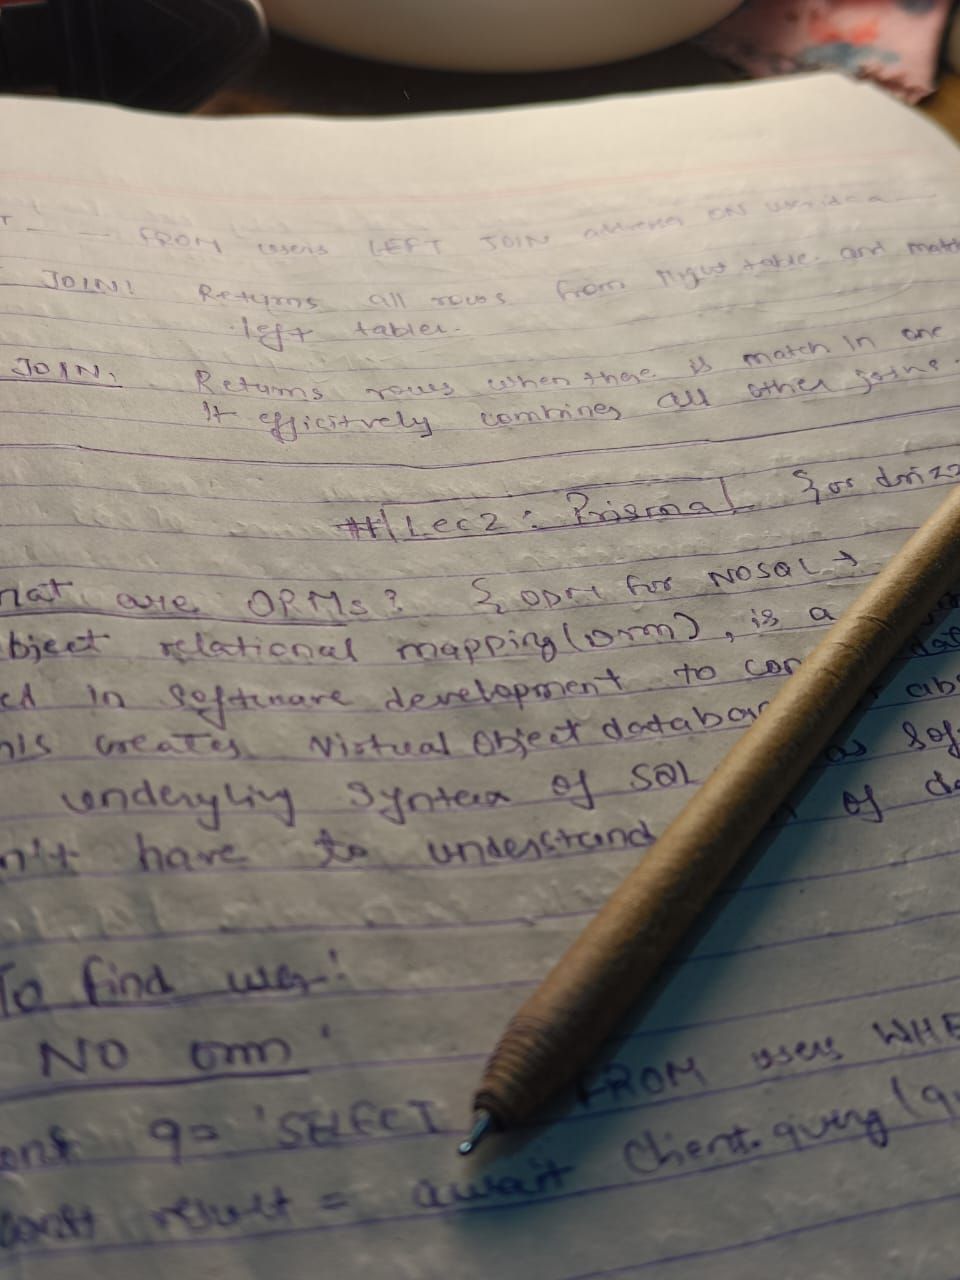 FROM users LEFT JOIN address ON
JOIN: Returns all rows from right table. and match
left table.
JOIN: Returns rows when there is match in one
It efficitvely combines all other joins.
# Lec 2 : Prisma { or drizz
hat are ORMs? { ODM for NOSQL →
bject relational mapping (orm), is a
ed in software development to con
his creates Virtual Object database abs
underlying syntax of SQL as sof
n't have to understand of da
To find user:
NO orm:
onst q= 'SELECT FROM users WHE
const result = await Client.query (q